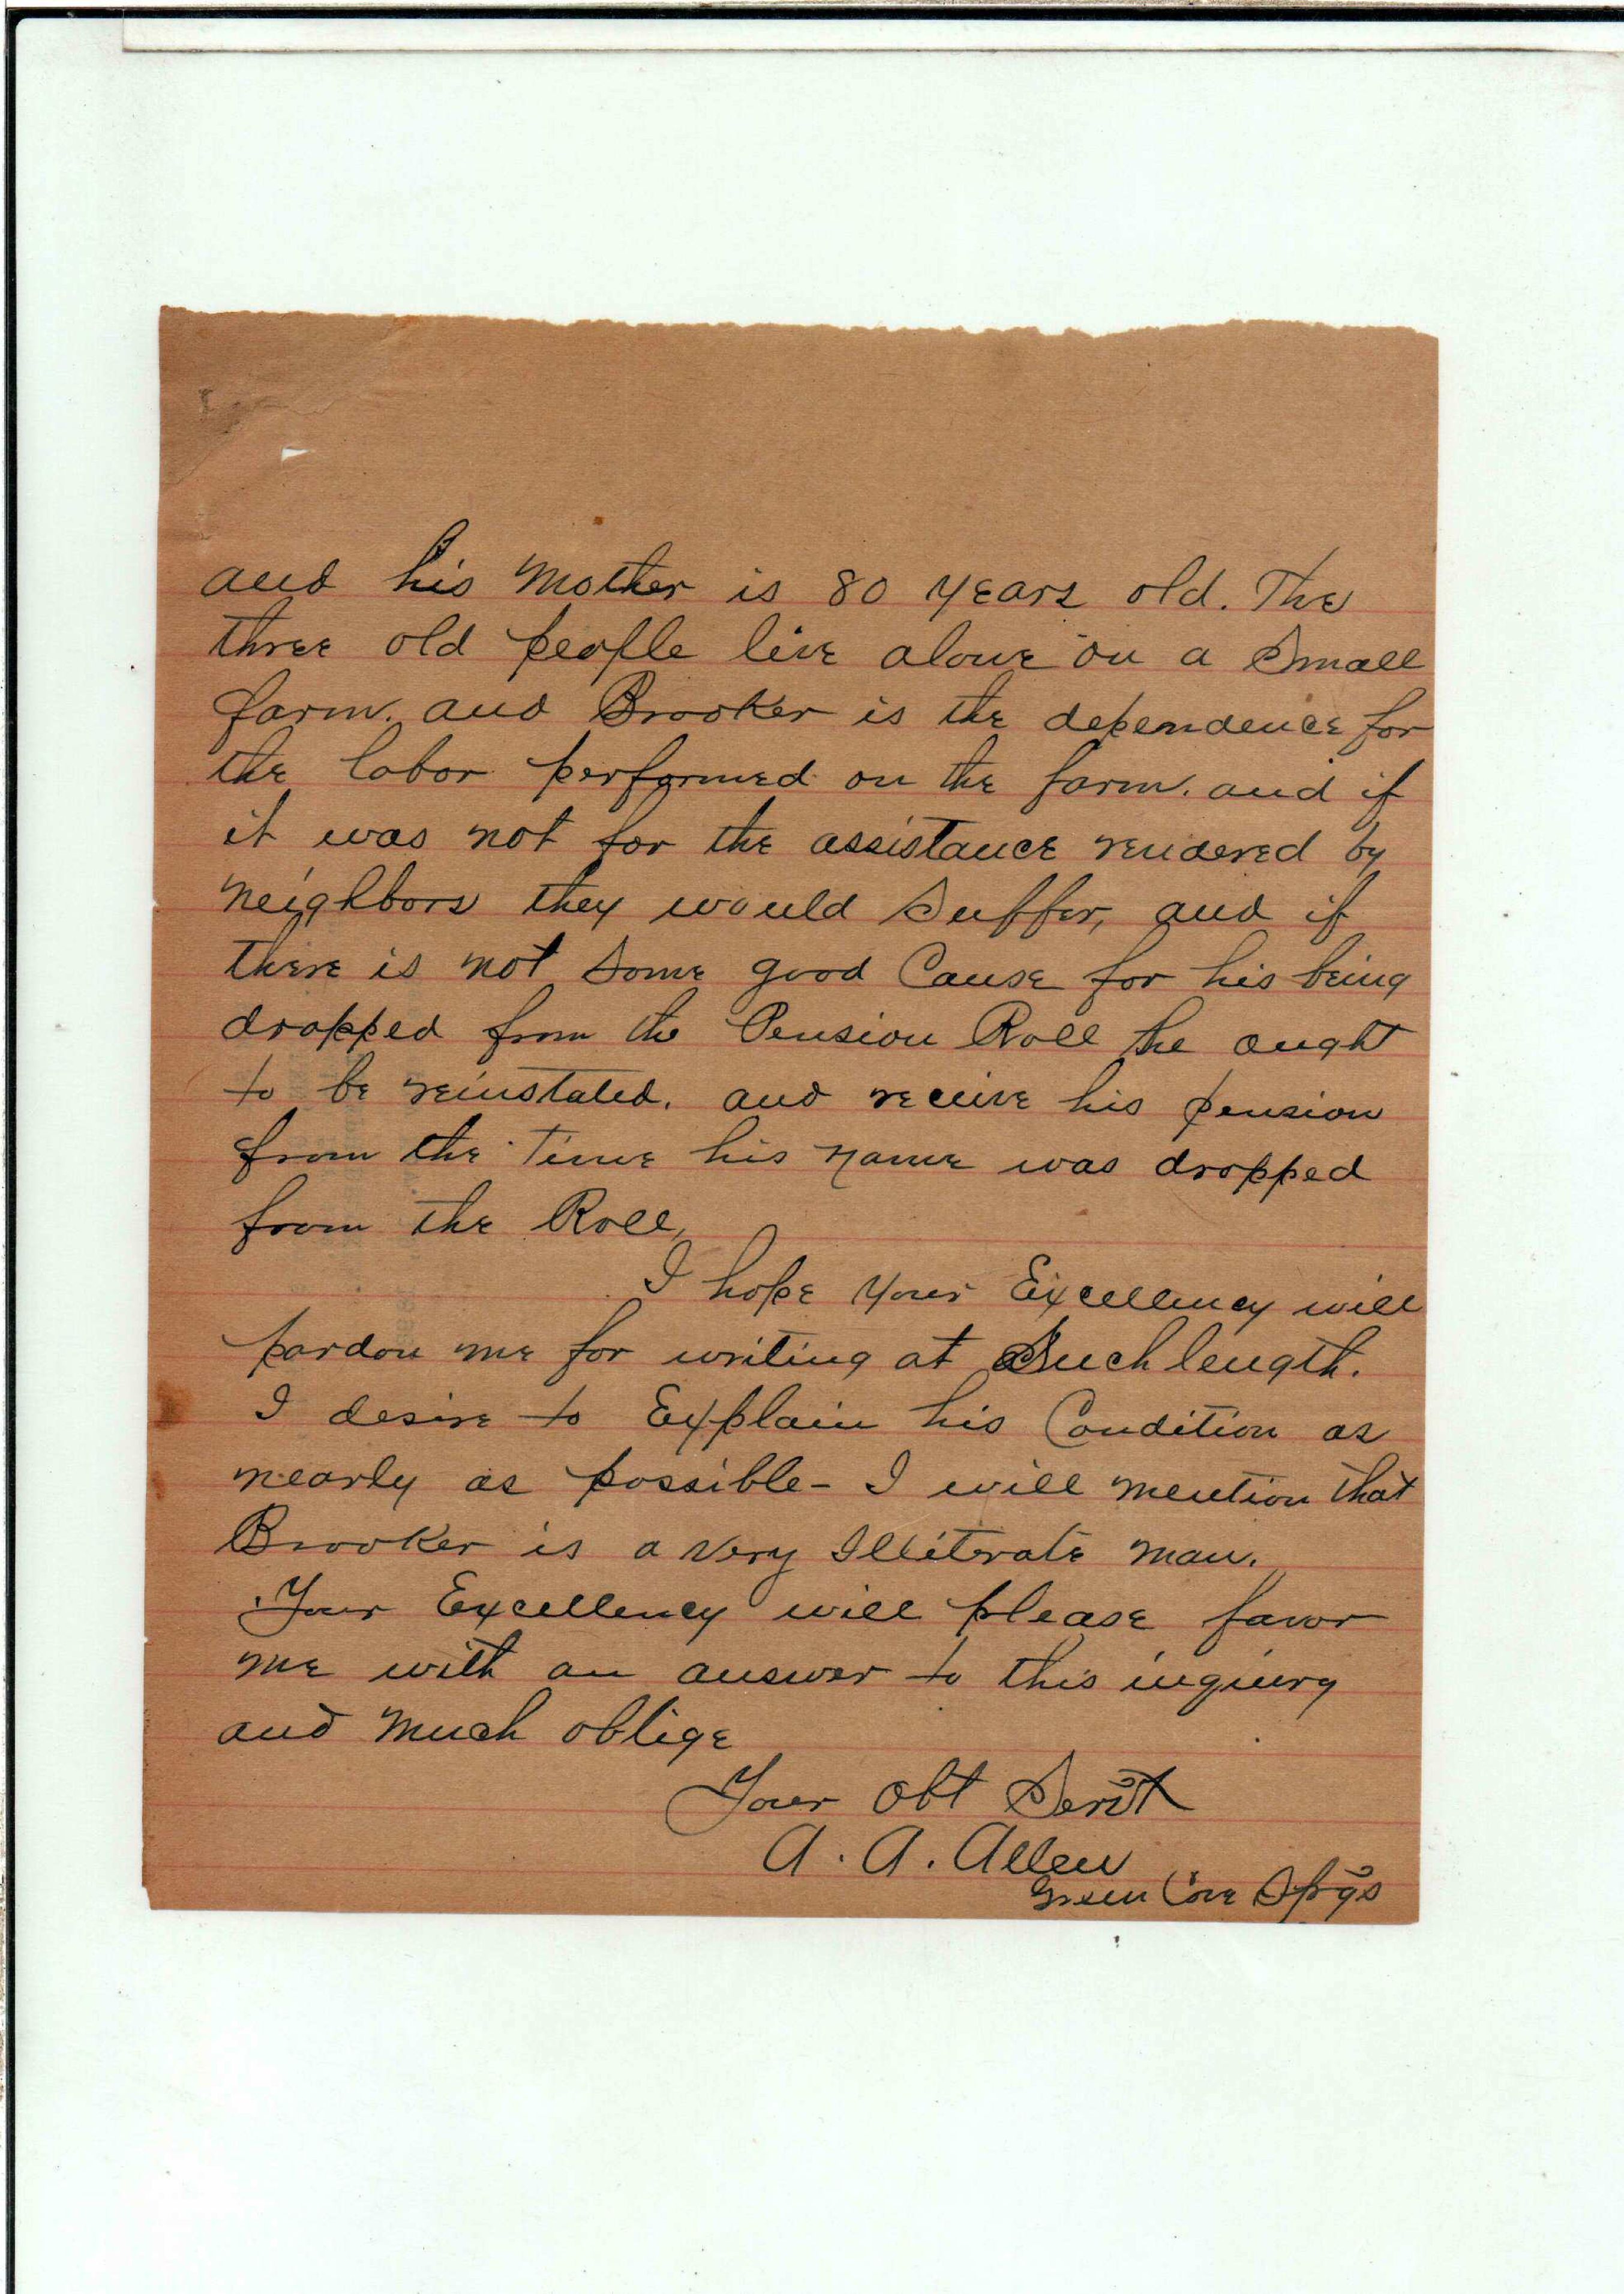 and his Mother is 80 years old. The
three old people live alone on a Small
farm. and Brooker is the dependence for
the labor performed on the farm. and if
it was not for the assistance rendered by
neighbors they would Suffer, and if
there is not Some good Cause for his being
dropped from the Pension Roll he ought
to be reinstated. and receive his pension
from the time his name was dropped
from the Roll,
I hope your Excellency will
pardon me for writing at Such length.
I desire to Explain his Condition as
nearly as possible - I will mention that
Brooker is a very Illiterate man.
Your Excellency will please favor
me with an answer to this inquiry
and Much oblige
Your Obt Servt
A. A. Allen
Green Cove Sp'gs